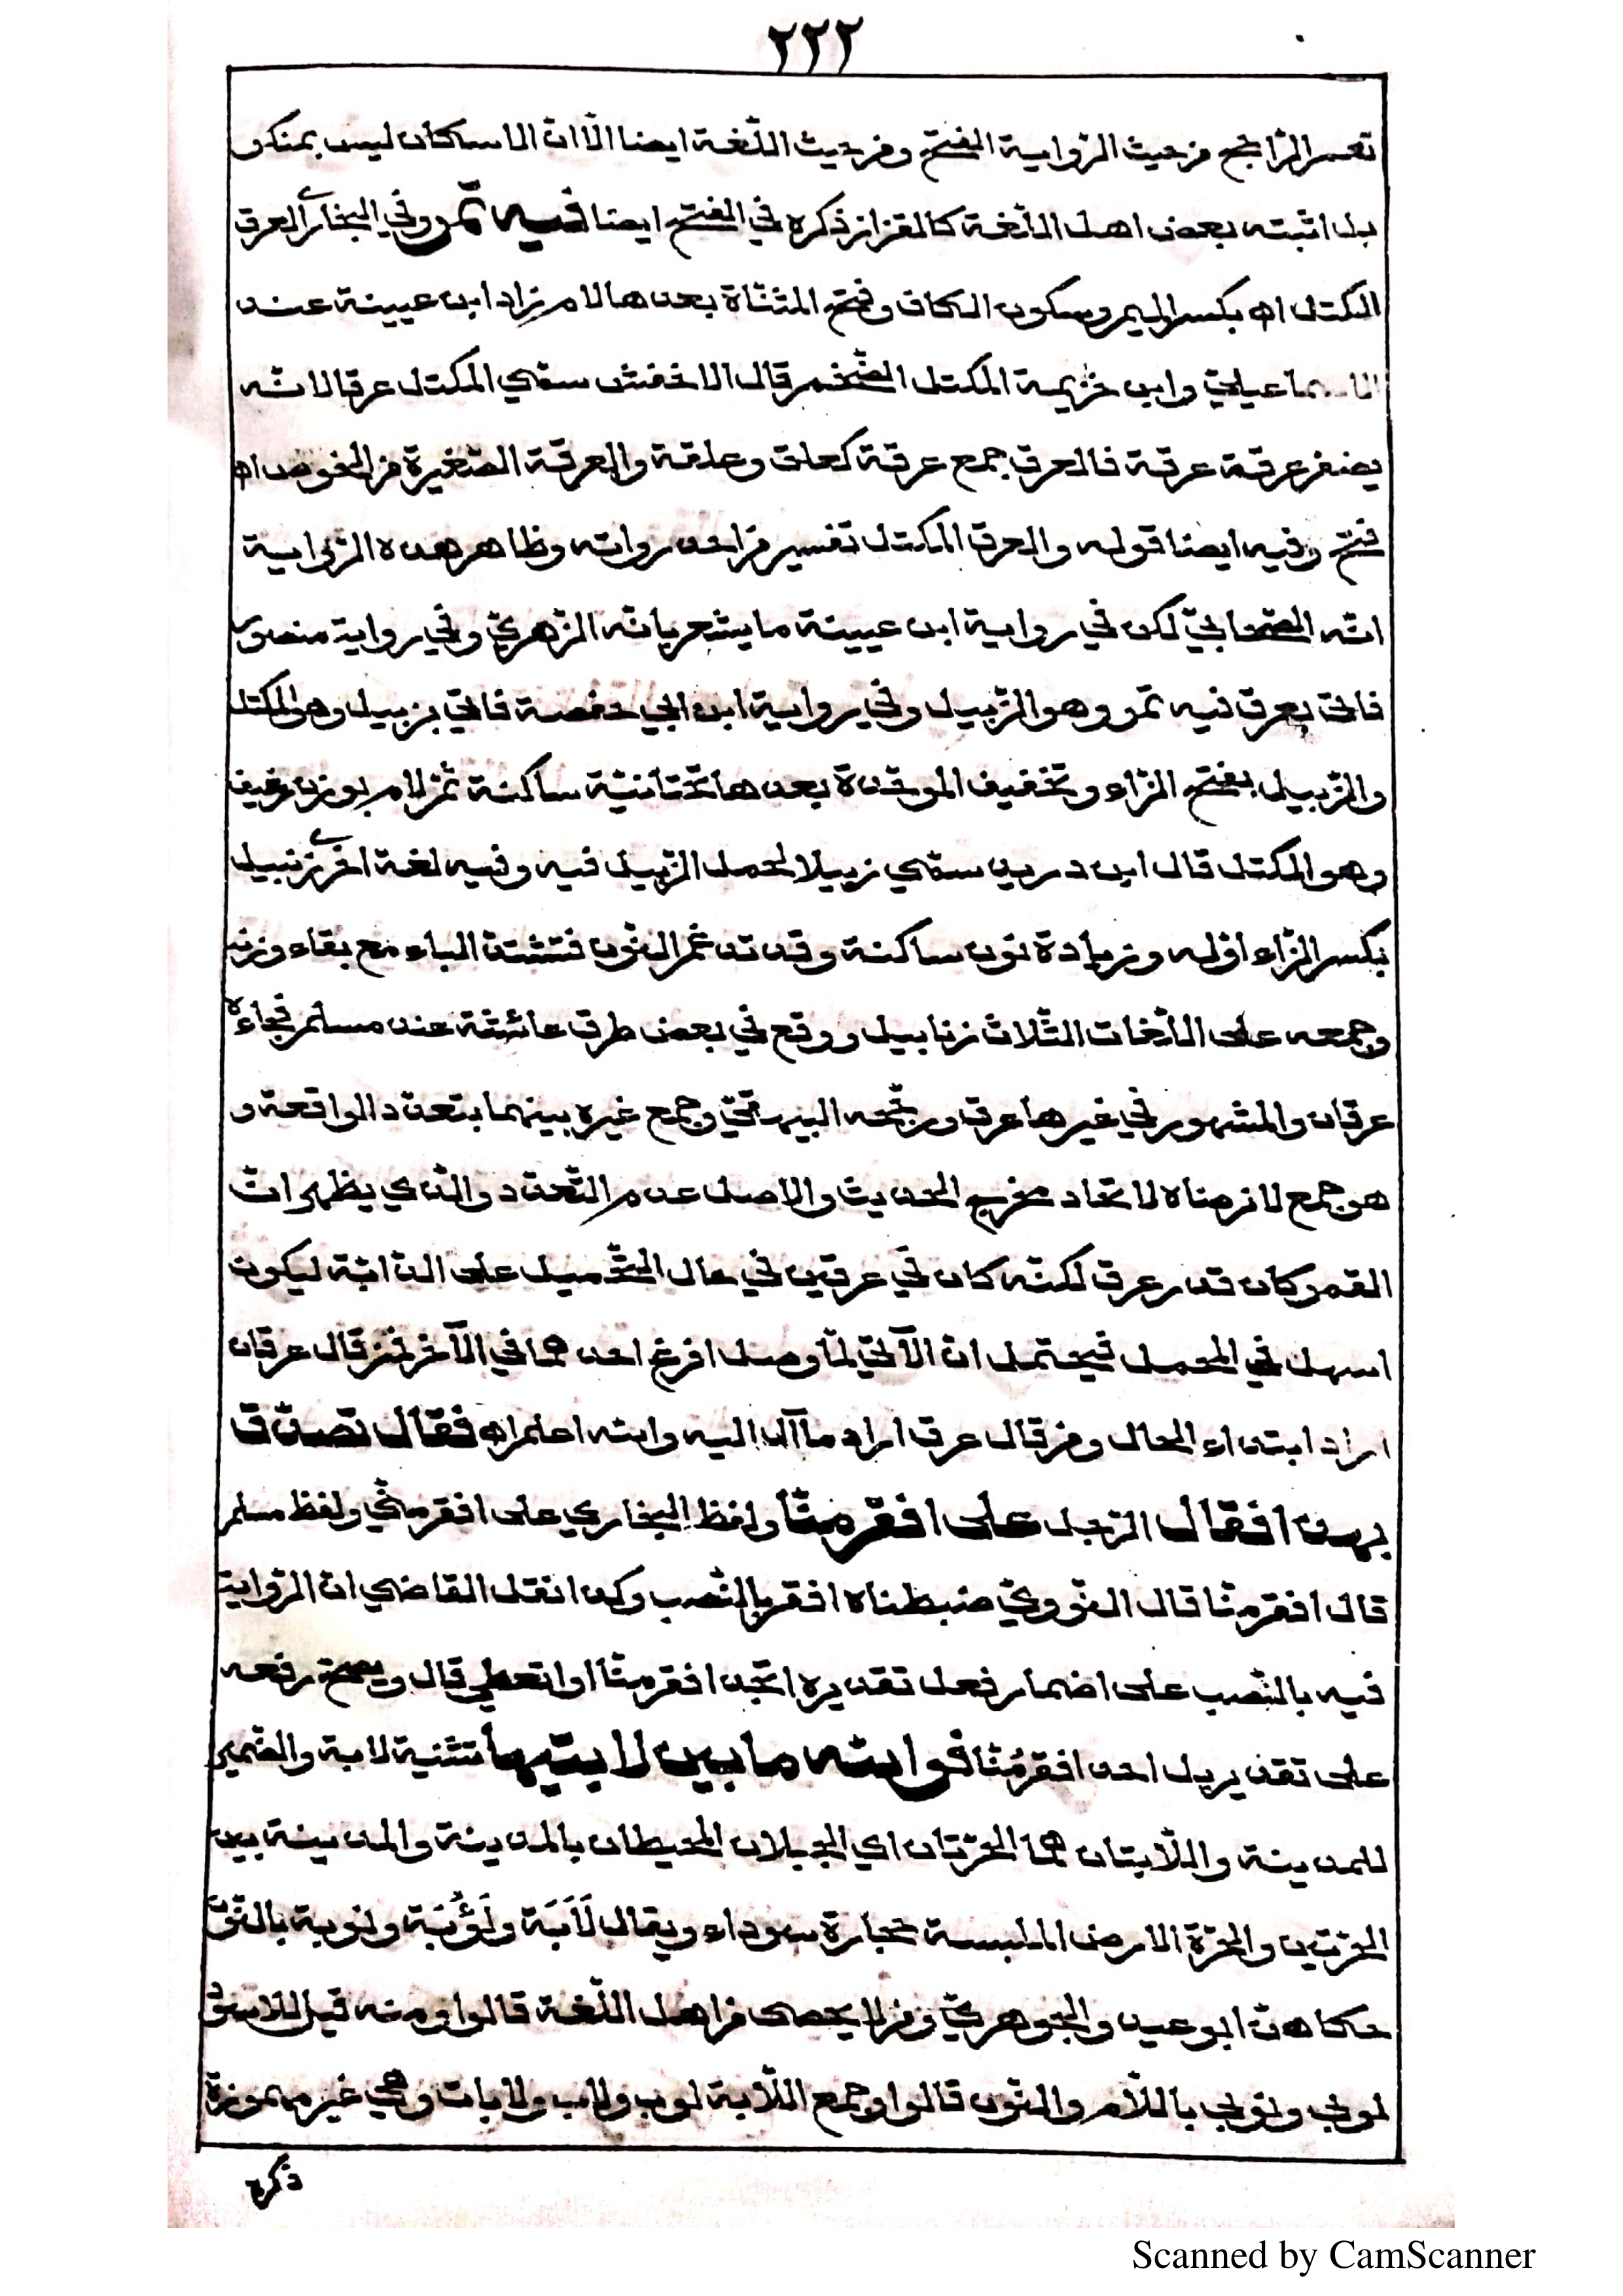 ٢٢٢
نعم الرّاجح من حيث الرّواية الفتح ومن حيث اللّغة ايضا الّا انّ الاسكان ليس بمنكر
بل اثبته بعض اهل اللّغة كالقزاز ذكره في الفتح ايضا فيه تمر وفي البخاري العرق
المكتل اه بكسر الميم وسكون الكاف وفتح المثنّاة بعدها لام زاد ابن عيينة عند
الاسماعيلي وابن خزيمة المكتل الضّخم قال الاخفش سمّي المكتل عرقا لانّه
يضفر عرقة عرقة فالعرق جمع عرقة كعلق وعلقة والعرقة الضّفيرة من الخوص اه
فتح وفيه ايضا قوله والعرق المكتل تفسير من احد رواته وظاهر هذه الرّواية
انّه الصّحابيّ لكن في رواية ابن عيينة ما يشعر بانّه الزّهريّ وفي رواية منصور
فاتى بعرق فيه تمر وهو الزّبيل وفي رواية ابن ابي حفصة فاتي بزبيل وهو المكتل
والزّبيل بفتح الزّاء وتخفيف الموحّدة بعدها تحتانيّة ساكنة ثمّ لام بوزن رغيف
وهو المكتل قال ابن دريد سمّي زبيلا لحمل الزّبل فيه وفيه لغة اخرى زنبيل
بكسر الزّاء اوّله وزيادة نون ساكنة وقد تدغم النّون فتشدّد الباء مع بقاء وزنه
وجمعه على اللّغات الثّلاث زنابيل ووقع في بعض طرق عائشة عند مسلم فجاءه
عرقان والمشهور في غيرها عرق ورجّحه البيهقيّ وجمع غيره بينهما بتعدّد الواقعة و
هو جمع لا نرضاه لاتحاد مخرج الحديث والاصل عدم التّعدّد والّذي يظهر انّ
التمر كان قدر عرق لكنّه كان في عرقين في حال التّحميل على الدّابّة ليكون
اسهل في الحمل فيحتمل انّ الآتي لمّا وصل افرغ احدهما في الآخر فمن قال عرقان
اراد ابتداء الحال ومن قال عرق اراد ما آل اليه والله اعلم اه فقال تصدّق
بهذا فقال الرّجل على افقر منّا ولفظ البخاري على افقر منّي ولفظ مسلم
قال افقر منّا قال النّوويّ ضبطناه افقر بالنّصب وكذا نقل القاضي انّ الرّواية
فيه بالنّصب على اضمار فعل تقديره اتجد افقر منّا او اتعطي قال ويصحّ رفعه
على تقدير هل احد افقر منّا فوالله ما بين لابتيها تثنية لابة والضّمير
للمدينة واللّابتان همّا الحرّتان اي الجبلان المحيطان بالمدينة والمدينة بين
الحرّتين والحرّة الارض الملبسة حجارة سوداء ويقال لَابَة ولُوْبَة ونوبة بالنّون
حكاهنّ ابو عبيد والجوهريّ ومن لا يحصى من اهل اللّغة قالوا ومنه قيل للاسود
لوبي ونوبي باللّام والنّون قالوا وجمع اللّابة لوب ولاب ولابات وهي غير مهموزة
ذكره
Scanned by CamScanner